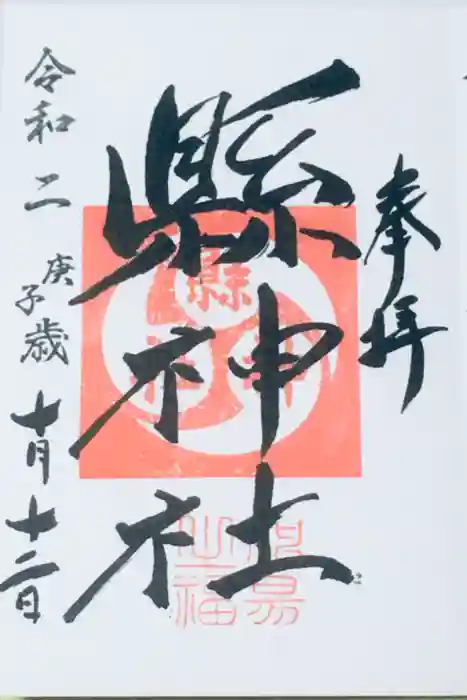 奉拝
縣神社
令和二庚子歳十月十二日
縣
神
社